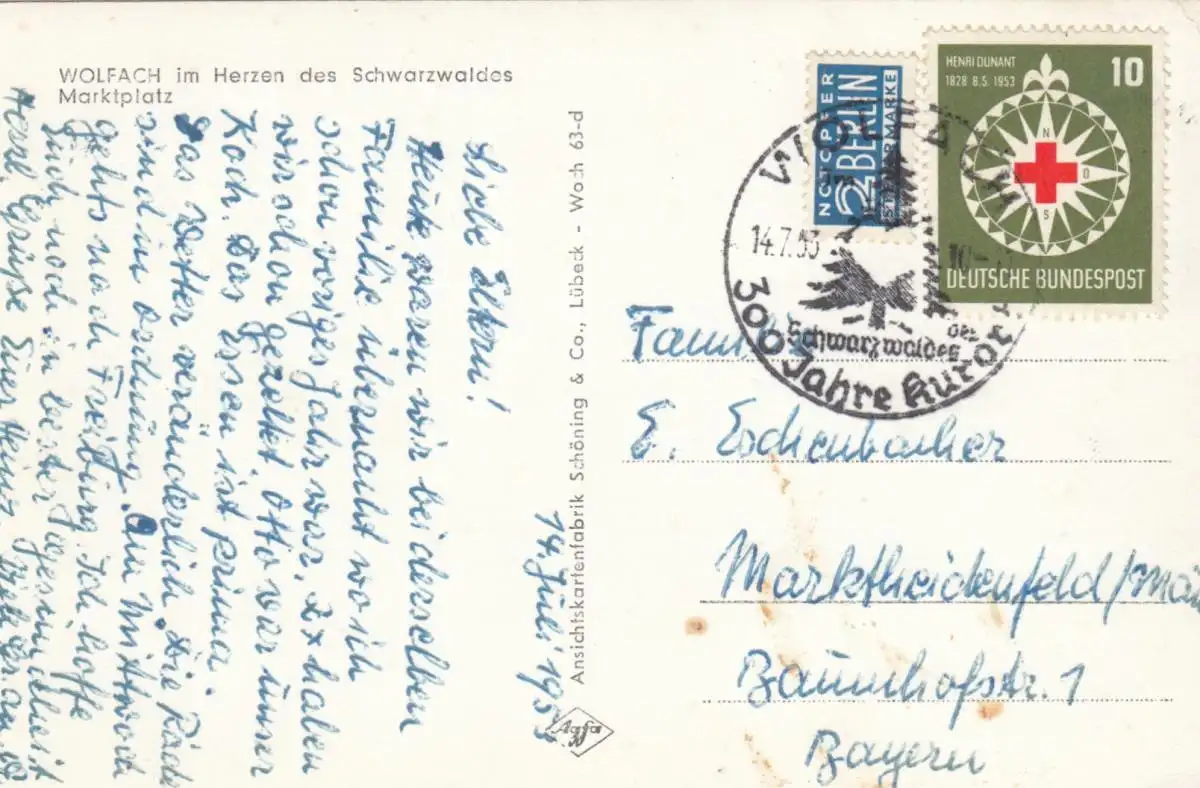 WOLFACH im Herzen des Schwarzwaldes
Marktplatz
14. Juli 1953
Liebe Eltern!
Heute waren wir bei derselben
Familie übernacht wo ich
schon voriges Jahr war. 2x haben
wir schon gezeltet. Otto war unser
Koch. Das Essen ist prima.
Das Wetter veränderlich. Die Räder
sind in Ordnung. Am Mittwoch
gehts nach Freiburg. Ich hoffe
Euch noch in bester Gesundheit
Herzl. Grüße Euer Heinz. Viele
Ansichtskartenfabrik Schöning & Co., Lübeck - Wolfach 63-d
Agfa
NOTOPFER
2 BERLIN
STEUERMARKE
HENRI DUNANT
1828 8.5.1953
10
N
O
S
DEUTSCHE BUNDESPOST
WOLFACH
14.7.53
10-
des
Schwarzwaldes
300 Jahre Kurort
Familie
E. Eschenbacher
Marktheidenfeld/Main
Baumhofstr. 1
Bayern